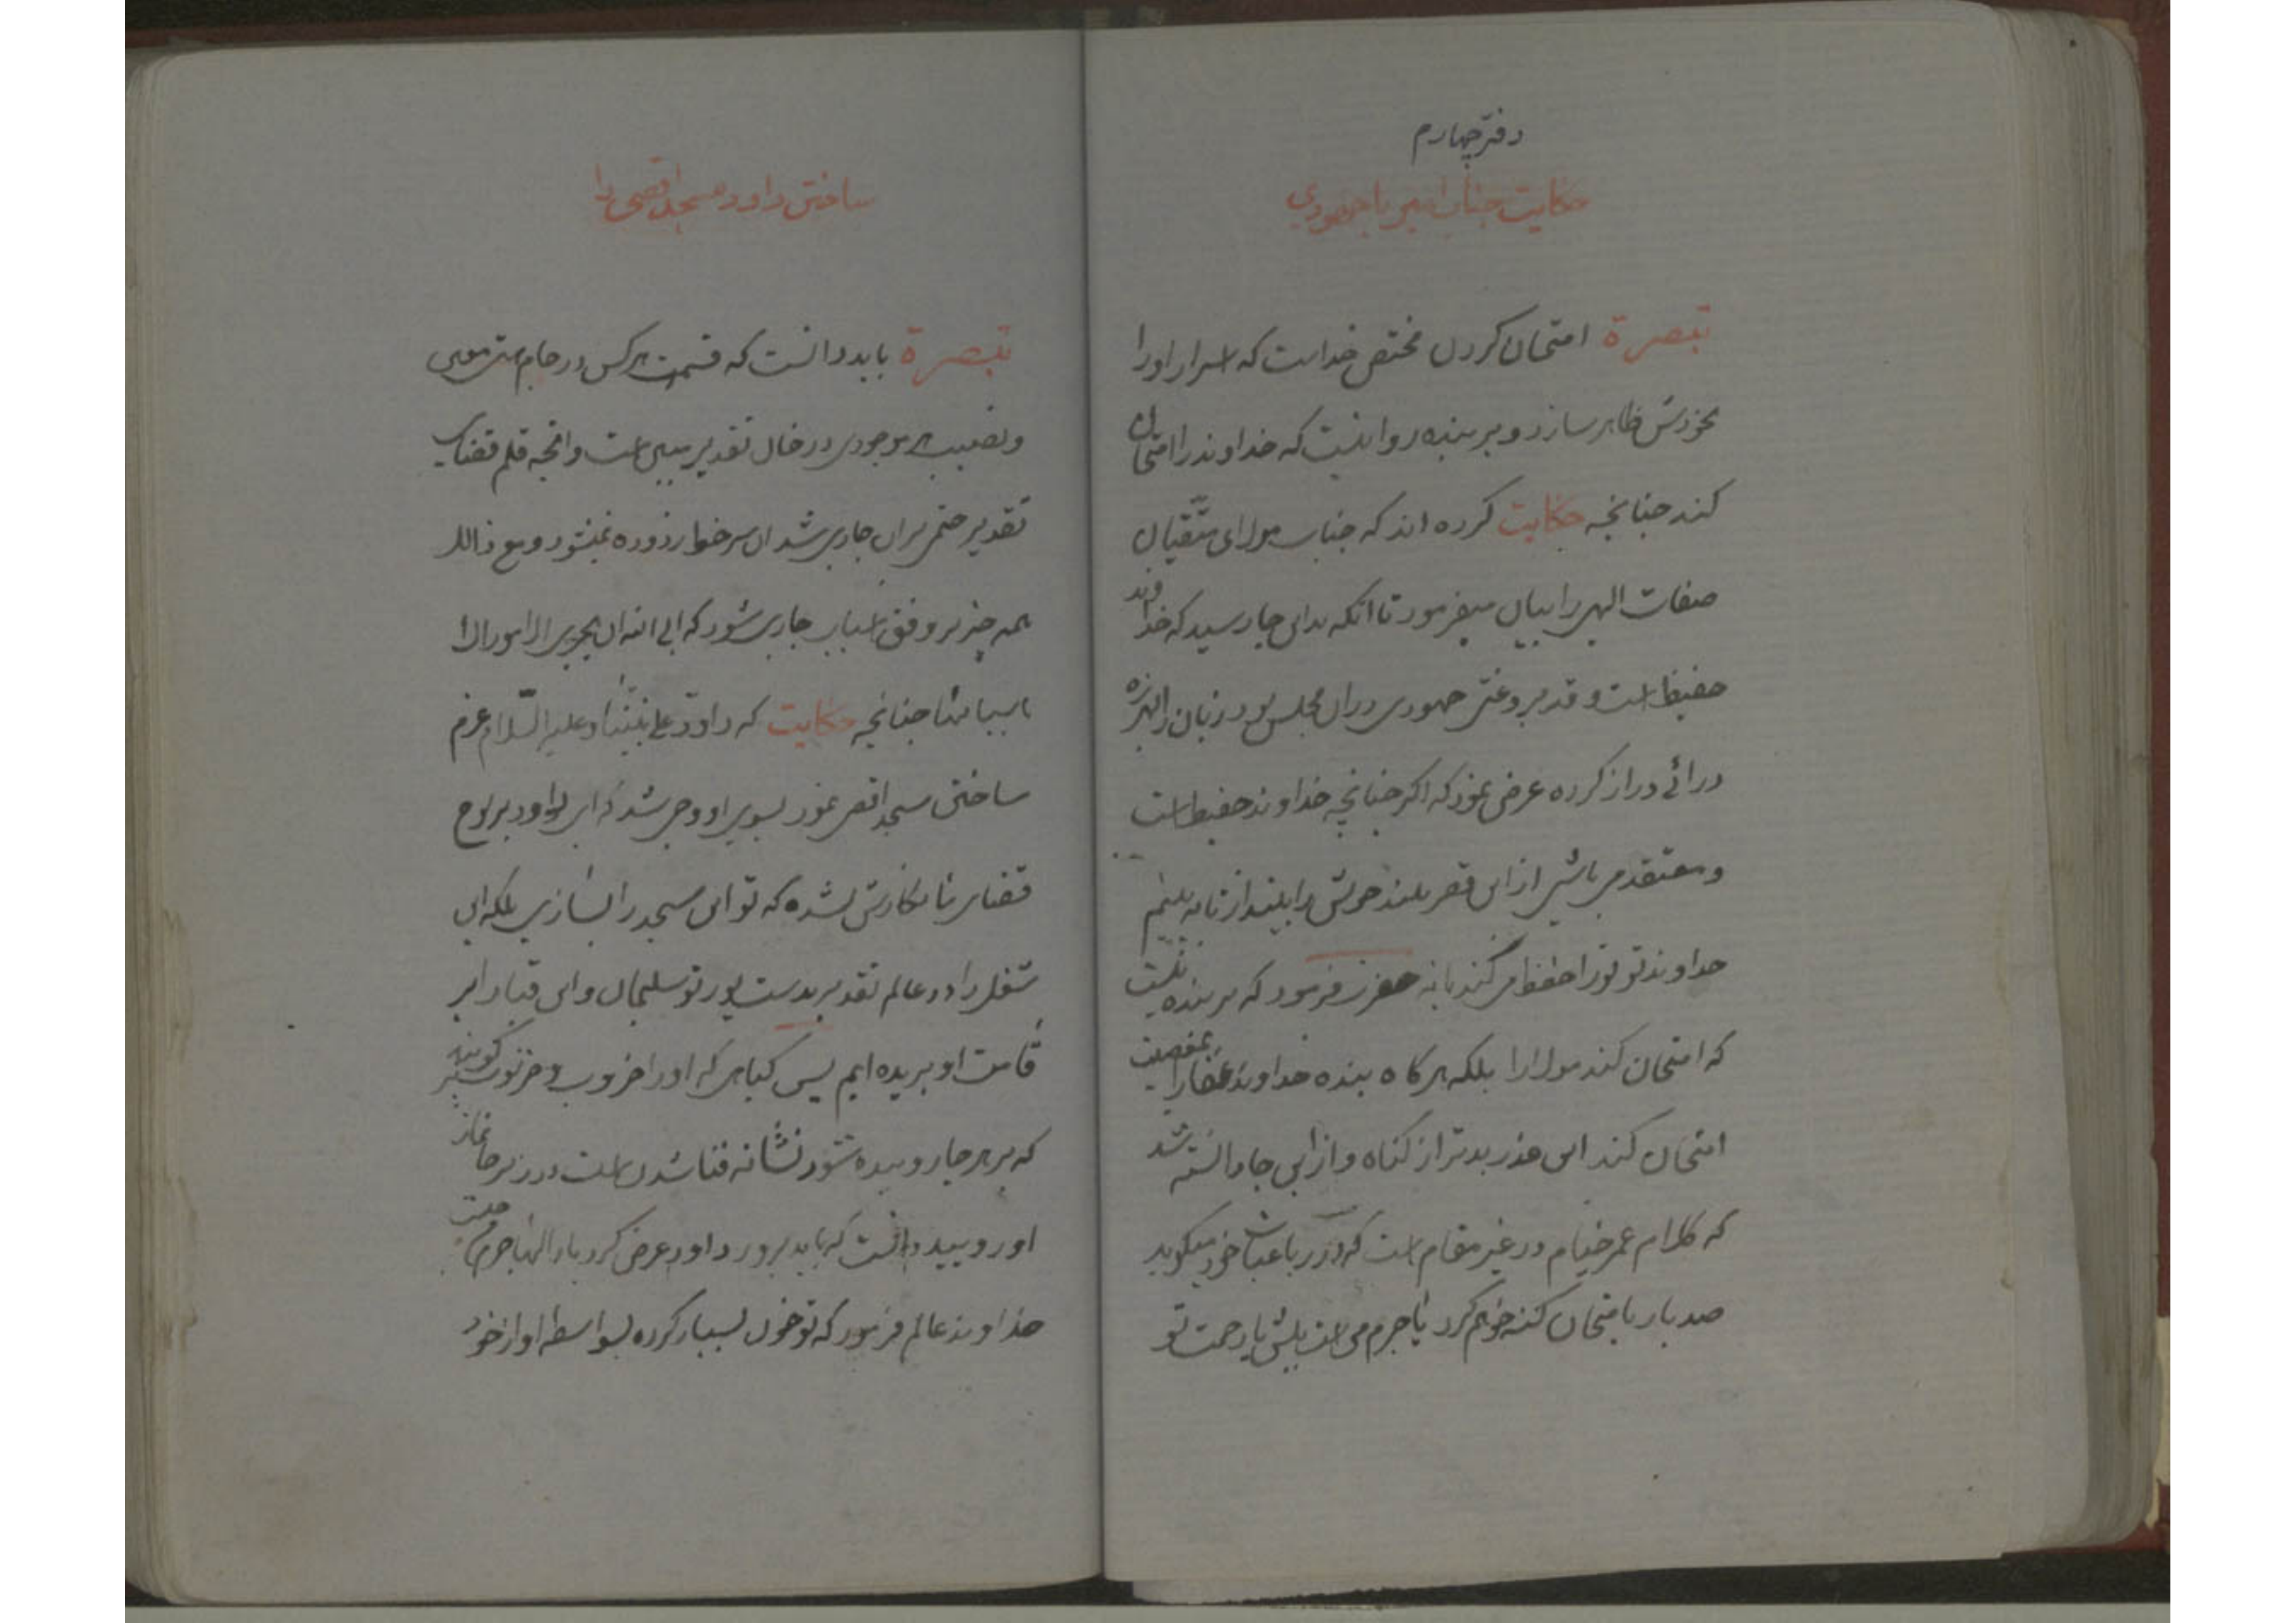 دفتر چهارم
حکایت جناب امیر با جهودی
تبصرة امتحان کردن مختص خداست که اسرار او را
بخودش ظاهر سازد و بر بنده روا نیست که خداوند را امتحان
کند چنانچه حکایت کرده اند که جناب مولای متقیان
صفات الهی را بیان میفرمود تا آنکه بدان جا رسید که خداوند
حفیظ است و قدیر وغتی جهودی در ان مجلس بود زبان را
درائی دراز کرده عرض نمود که اگر چنانچه خداوند حفیظ است
و معتقد می باشی از این قصر بلند خویش را بینداز تا به بینم
خداوند تو تو را حفظ می کند یا نه حضرت فرمود که بر بنده نیست
که امتحان کند مولا را بلکه هر کاه بنده خداوند غفار را بمعصیت
امتحان کند این عذر بدتر از کناه و از این جا دانسته شد
که کلام عمر خیام در غیر مقام است که در رباعیات خود میکوید
صد بار بامتحان کنه خواهم کرد یا جرم من است بیش یا رحمت تو
ساختن داود مسجد اقصی را
تبصرة باید دانست که قسمت هر کس در جام
و نصیب هر موجودی در تقدیر مبین است و انچه قلم قضای
تقدیر حتمی بر ان جاری شد ان سر خوار زورده نمیشود و مع ذالک
همه چیز بر وفق اسباب جاری شود که ابی الله ان یجری الامور الا
باسبابها چنانچه حکایت که داود علی نبینا و علیه السلام عزم
ساختن مسجد اقصی نمود بسوی او وحی شد که ای داود بر لوح
قضای ما نکارش نشده که تو این مسجد را بسازی بلکه این
شغل را در عالم تقدیر بدست پور تو سلیمان و این قبا را بر
قامت او بریده ایم پس کیاهی که او را خروب و خرنوب کویند
که بر هر جا روییده شود نشانه فنا شدن است در زیر جا نماز
او رویید دانست که باید برود داود عرض کرد بار الها جرم من چیست
خداوند عالم فرمود که تو خون بسیار کرده بواسطه اواز خود